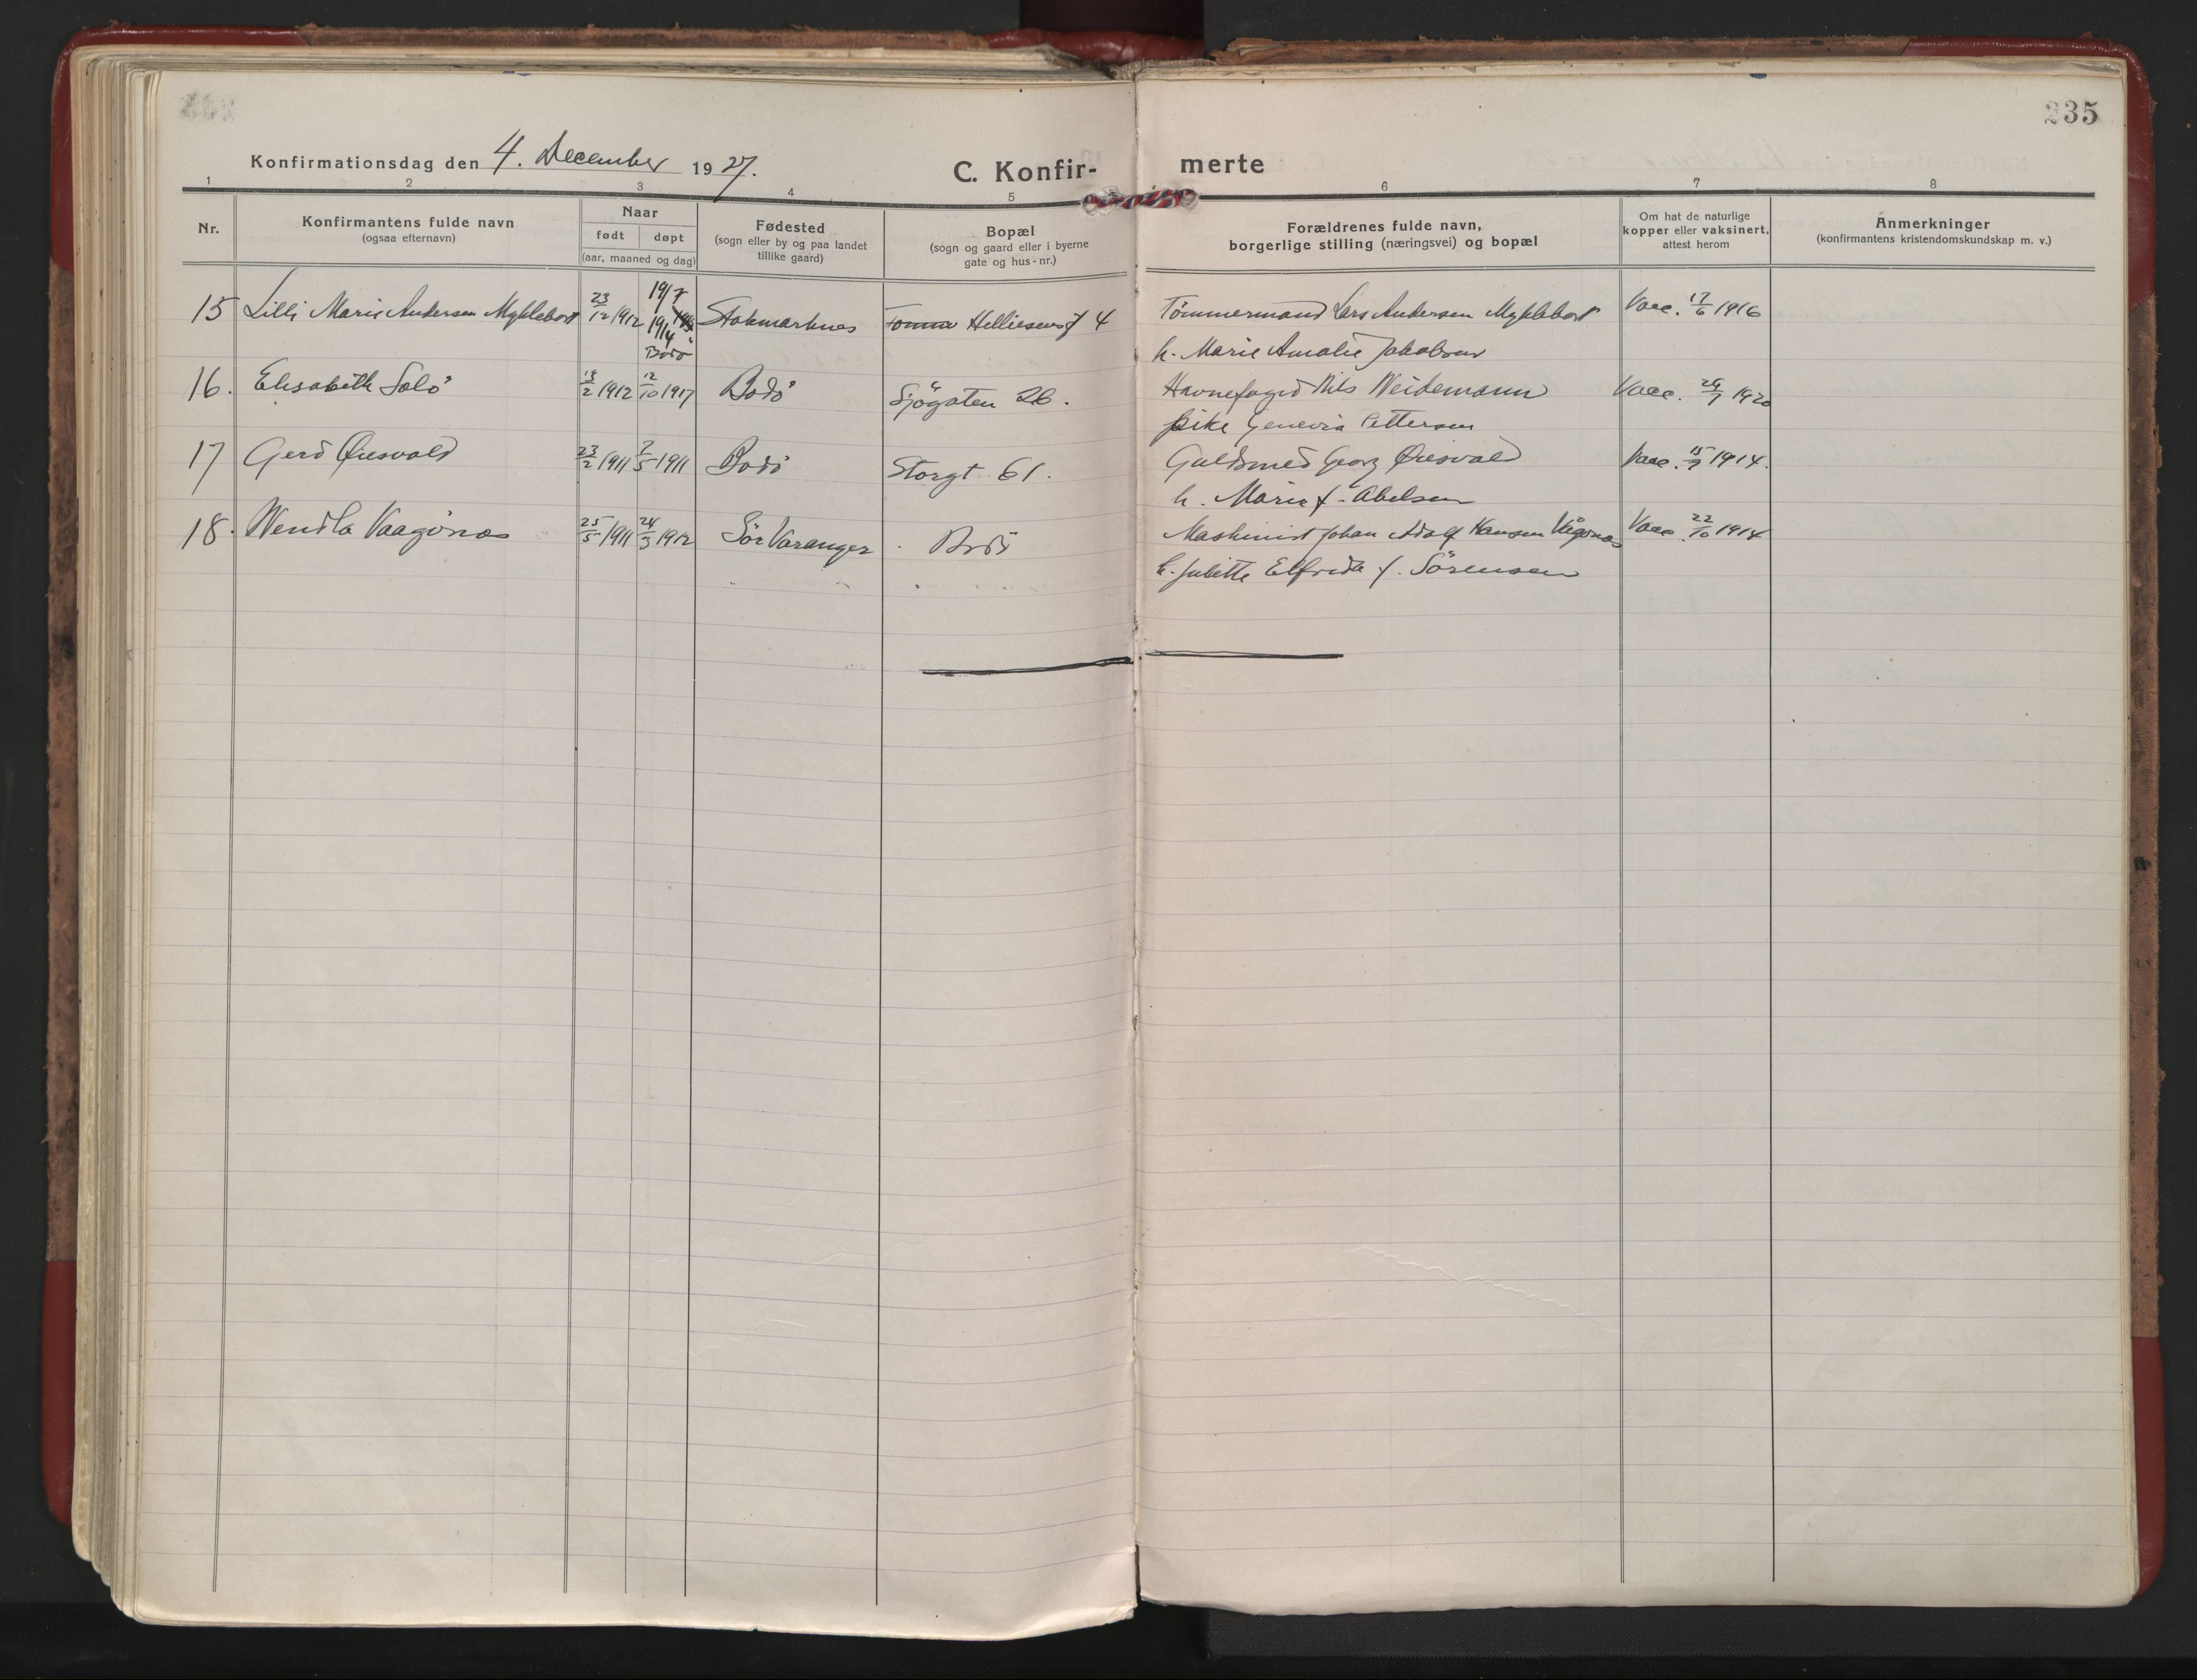 235
Konfirmationsdag den 4. December 1927.
C. Konfir- merte
1 2 3 4 5 6 7 8
Nr.
Konfirmantens fulde navn
(ogsaa efternavn)
Naar
født døpt
(aar, maaned og dag)
Fødested
(sogn eller by og paa landet
tillike gaard)
Bopæl
(sogn og gaard eller i byerne
gate og hus-nr.)
Forældrenes fulde navn,
borgerlige stilling (næringsvei) og bopæl
Om hat de naturlige
kopper eller vaksinert,
attest herom
Anmerkninger
(konfirmantens kristendomskundskap m. v.)
15 Lilli Marie Andersen Myklebost 23/12 1912 19/7 1914 Bodö Stokmarknes Helliesensgt 4 Tömmermand Lars Andersen Myklebost Vacc. 17/6 1916
h. Marie Amalie Jakobsen
16. Elisabeth Solö 18/2 1912 12/10 1917 Bodö Sjögaten 26. Havnefoged Nils Weidemann Vacc. 29/7 1920
pike Genevia Pettersen
17 Gerd Øiesvold 23/2 1911 7/5 1911 Bodö Storgt 61. Guldsmed Georg Øiesvold Vacc. 15/7 1914.
h. Marie f. Abelsen
18. Wendla Vaagönes 25/5 1911 24/3 1912 Sör Varanger Bodö Maskinist Johan Adolf Hansen Vågönes Vacc. 22/10 1914
h. Julitte Elfrida f. Sörensen